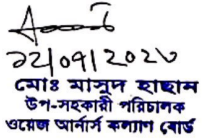 ১২/০৭/২০২৩
মোঃ মাসুদ হাছান
উপ-সহকারী পরিচালক
ওয়েজ আর্নার্স কল্যাণ বোর্ড